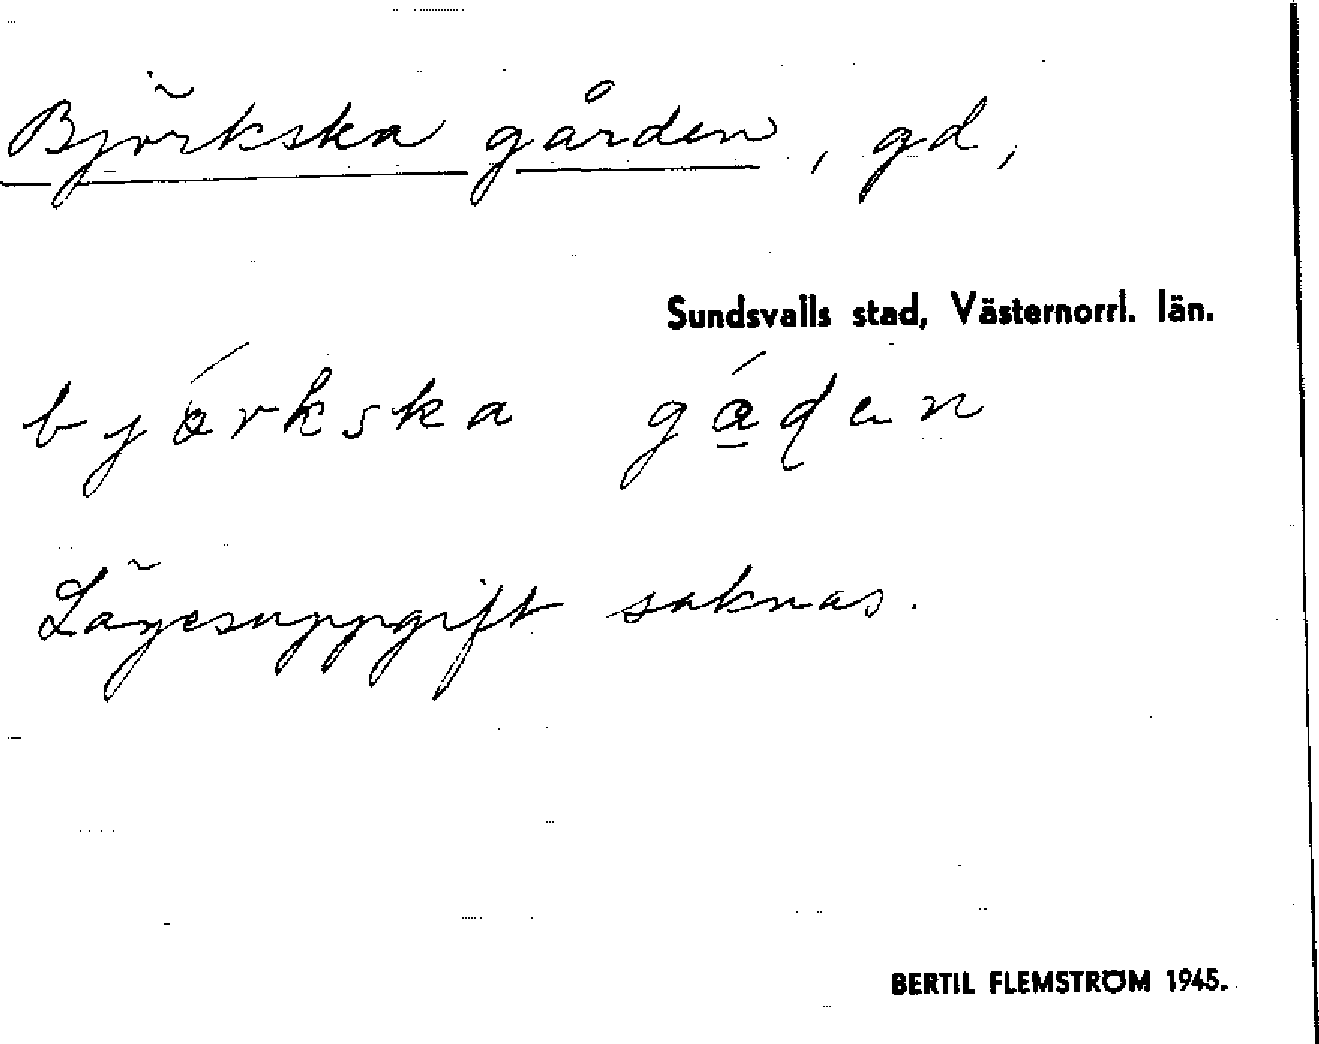 Björkska gården, gd,
Sundsvalls stad, Västernorrl. län.
Lägesuppgift saknas.
BERTIL FLEMSTRÖM 1945.